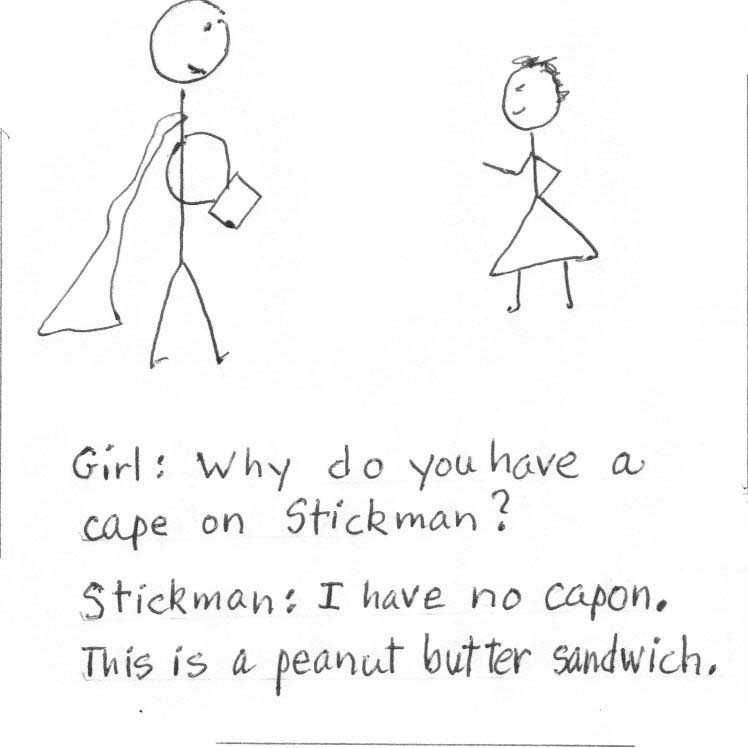 Girl: Why do you have a
cape on Stickman?
Stickman: I have no capon.
This is a peanut butter sandwich.